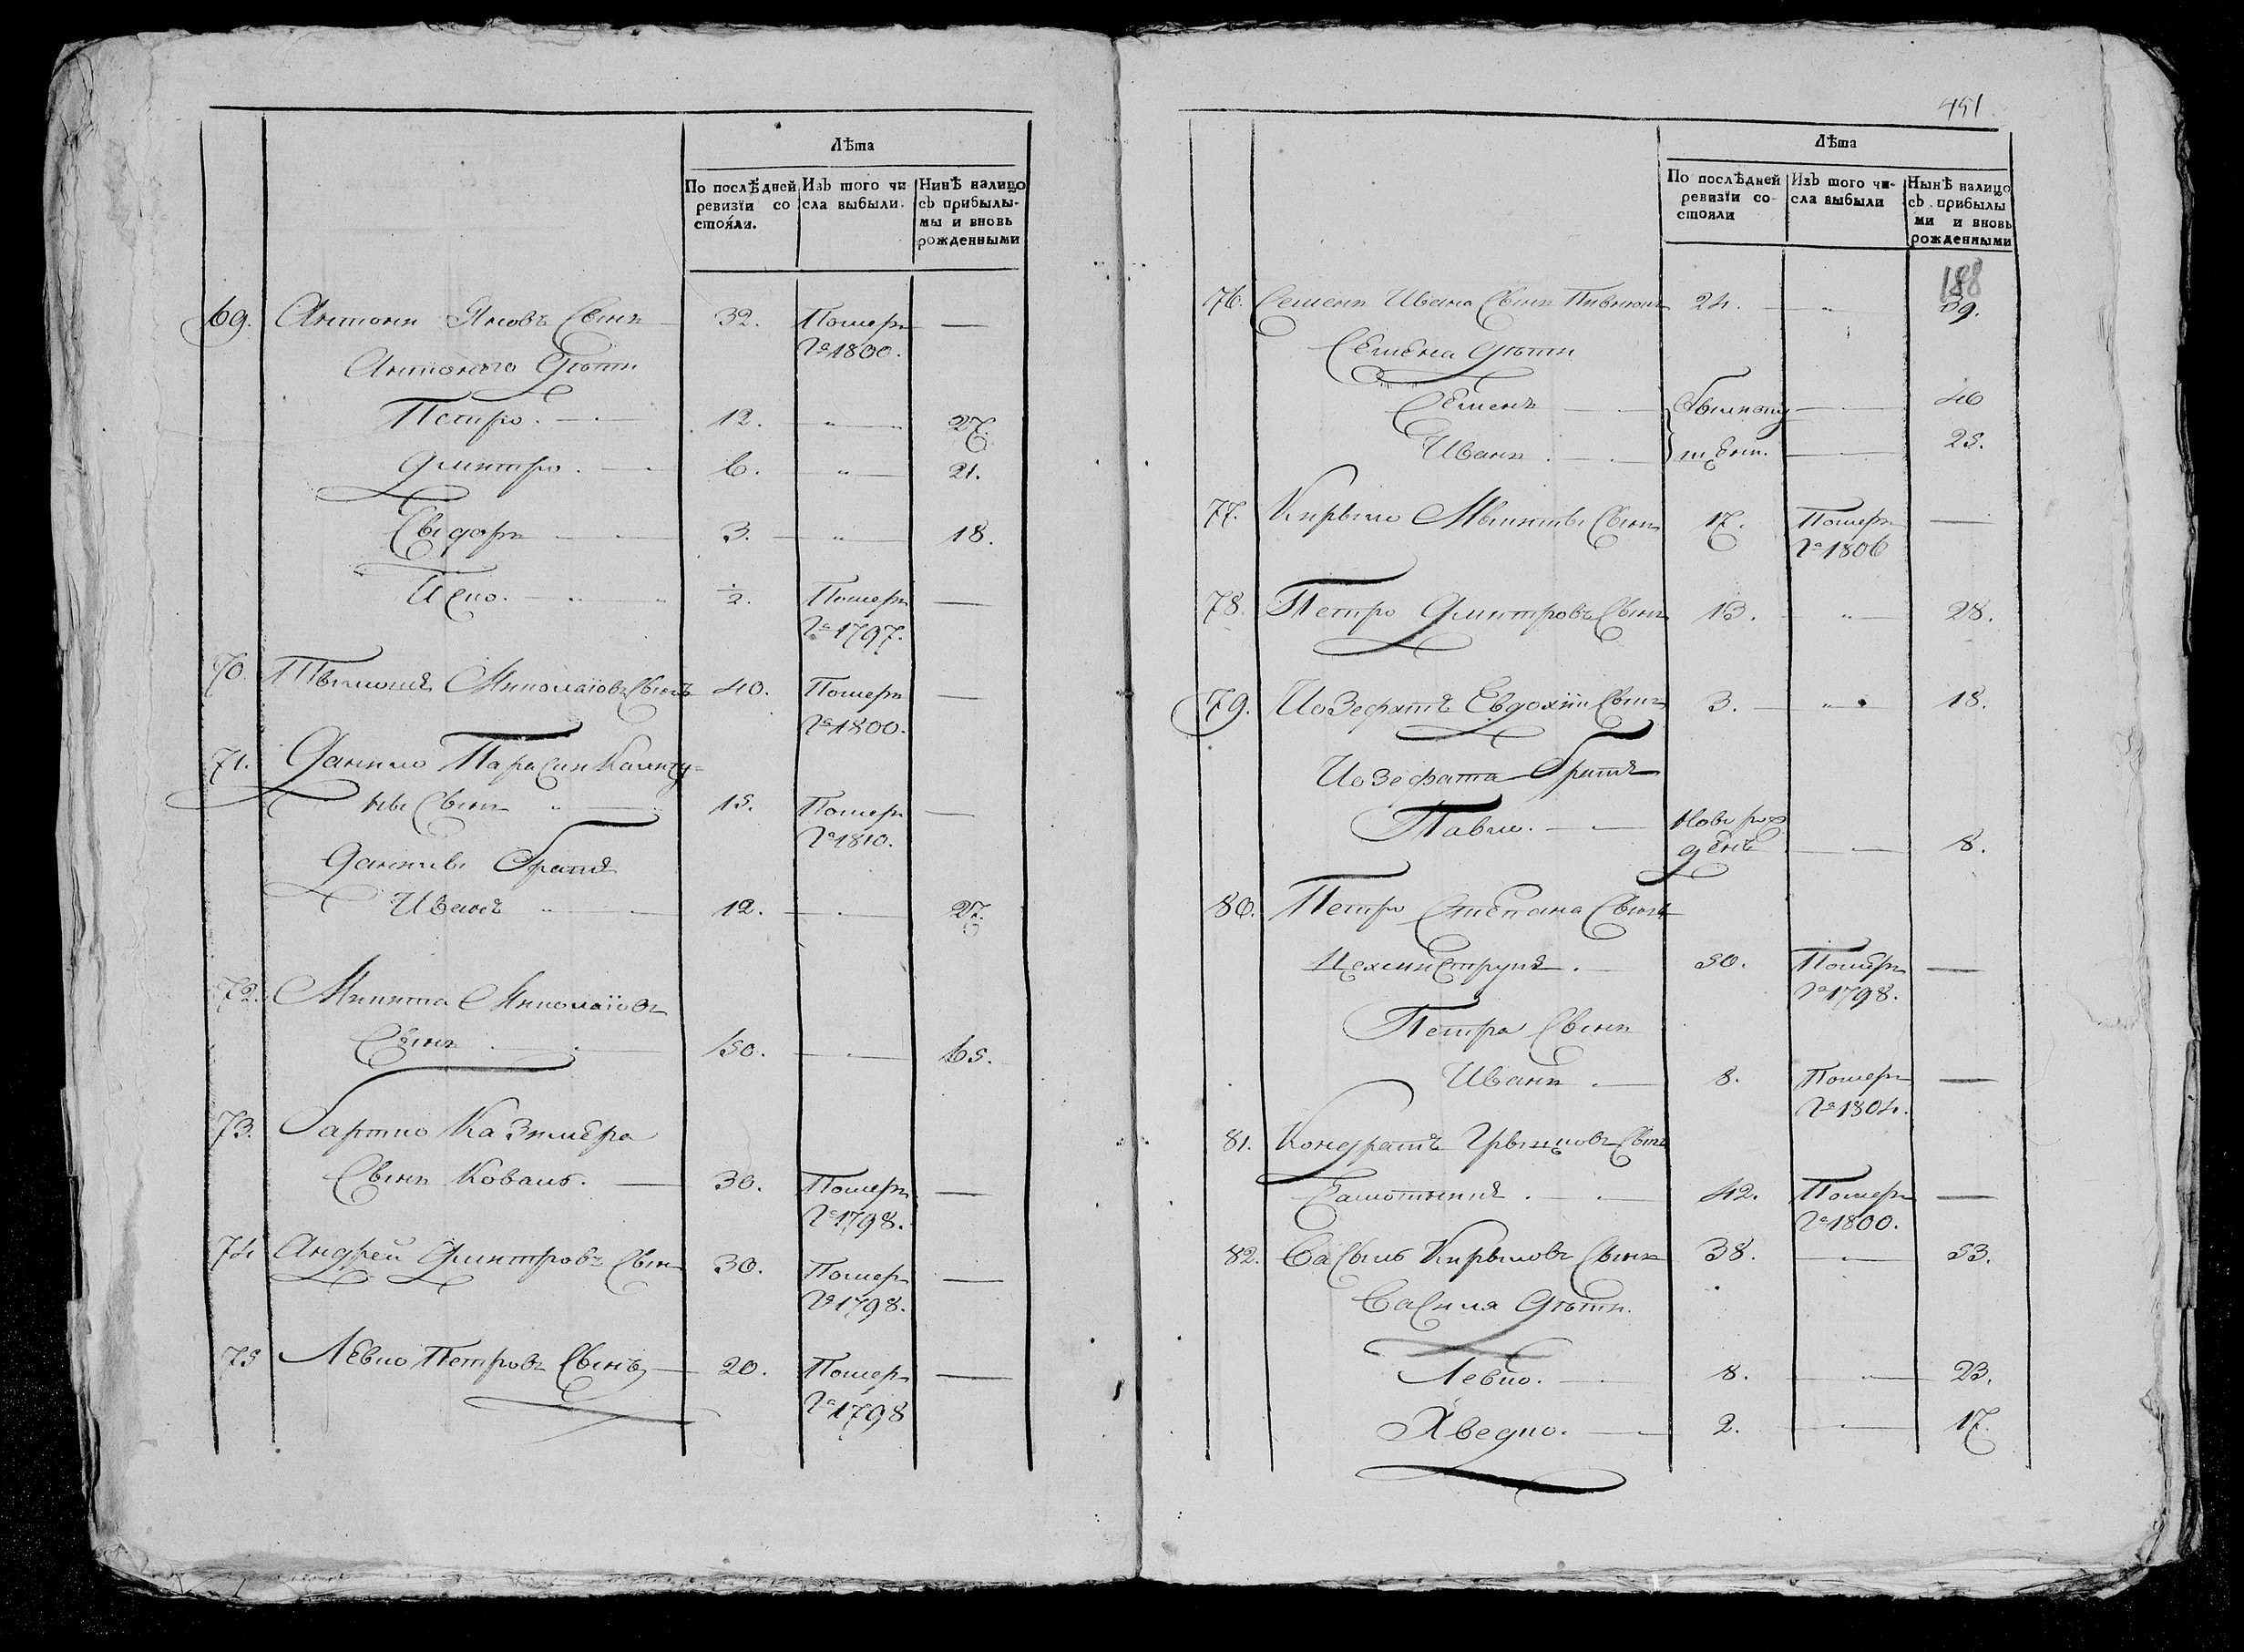 Лѣта
По послѣдней ревизїи со стояли.
Изъ того чи сла выбыли.
Нинѣ налицо съ прибылы- мы и вновь рожденными
69. Антонъ Яковъ Сынъ 32. Померъ —
Гᵃ 1800.
Антоного Дѣти
Петро. 12. „ 27.
Дмитро. 6. „ 21.
Сыдоръ 3. „ 18.
½. Померъ —
Гᵃ 1797.
70. Николаїовъ Сынъ 40. Померъ —
Гᵃ 1800.
71. Данило
ны Сынъ „ 15. Померъ —
Гᵃ 1810.
Данила Братъ
Иванъ „ 12. 27.
72. Микита Николаїовъ
Сынъ 50. 65.
73. Казимѣра
Сынъ Коваль. 30. Померъ —
Гᵃ 1798.
74 Андрей Дмитровъ Сынъ 30. Померъ —
Гᵃ 1798.
75 Левко Петровъ Сынъ 20. Померъ —
Гᵃ 1798
451
Лѣта
По послѣдней ревизїи со- стояли
Изъ того чи- сла выбыли
Нынѣ налицо съ прибылы ми и вновь рожденными
188
76. Семенъ Ивана Сынъ 24. „ 39.
Семена Дѣти
Семенъ 
Иванъ 25.
77. Кирыло Микиты Сынъ 17. Померъ —
Гᵃ 1806
78. Петро Дмитровъ Сынъ 13. „ 28.
79. Иозефатъ Евдохіи Сынъ 3. „ 18.
Иозефата Братъ
Павло. Новорож
денъ 8.
80. Петро Степана Сынъ
50. Померъ —
Гᵃ 1798.
Петра Сынъ
Иванъ 8. Померъ —
Гᵃ 1804.
81. Кондратъ Грыцковъ Сынъ
42. Померъ —
Гᵃ 1800.
82. Васыль Кирыловъ Сынъ 38. 53.
Василя Дѣти.
Левко. 8. „ 23.
Хведко. 2. 17.